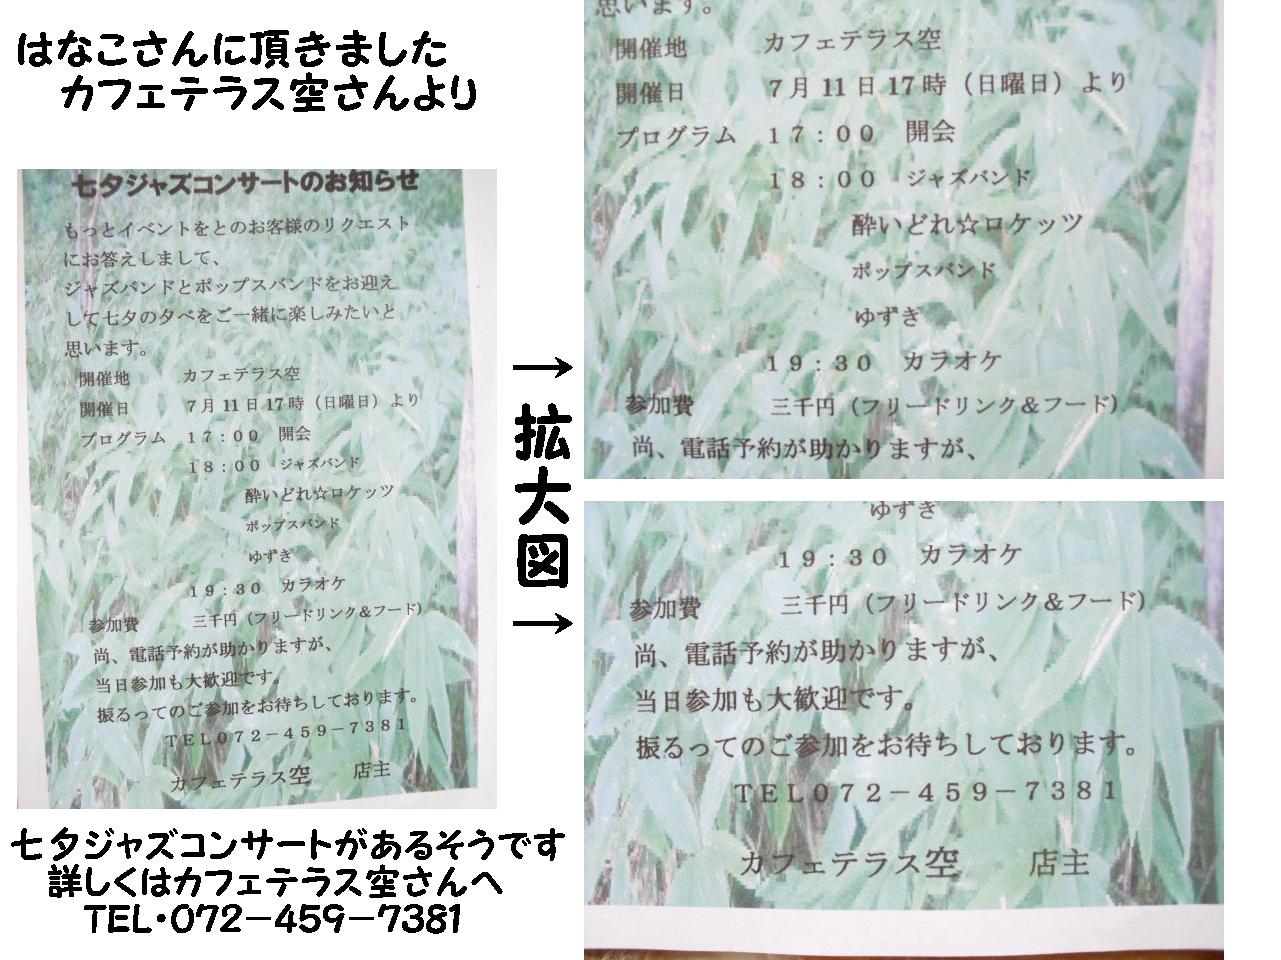 はなこさんに頂きました
カフェテラス空さんより
七夕ジャズコンサートのお知らせ
もっとイベントをとのお客様のリクエスト
にお答えしまして、
ジャズバンドとポップスバンドをお迎え
して七夕の夕べをご一緒に楽しみたいと
思います。
開催地 カフェテラス空
開催日 7月11日17時（日曜日）より
プログラム 17：00 開会
18：00 ジャズバンド
酔いどれ☆ロケッツ
ポップスバンド
ゆずき
19：30 カラオケ
参加費 三千円（フリードリンク＆フード）
尚、電話予約が助かりますが、
当日参加も大歓迎です。
振るってのご参加をお待ちしております。
TEL072－459－7381
カフェテラス空 店主
七夕ジャズコンサートがあるそうです
詳しくはカフェテラス空さんへ
TEL・072－459－7381
→
拡大図
→
思います。
開催地 カフェテラス空
開催日 7月11日17時（日曜日）より
プログラム 17：00 開会
18：00 ジャズバンド
酔いどれ☆ロケッツ
ポップスバンド
ゆずき
19：30 カラオケ
参加費 三千円（フリードリンク＆フード）
尚、電話予約が助かりますが、
ゆずき
19：30 カラオケ
参加費 三千円（フリードリンク＆フード）
尚、電話予約が助かりますが、
当日参加も大歓迎です。
振るってのご参加をお待ちしております。
TEL072－459－7381
カフェテラス空 店主